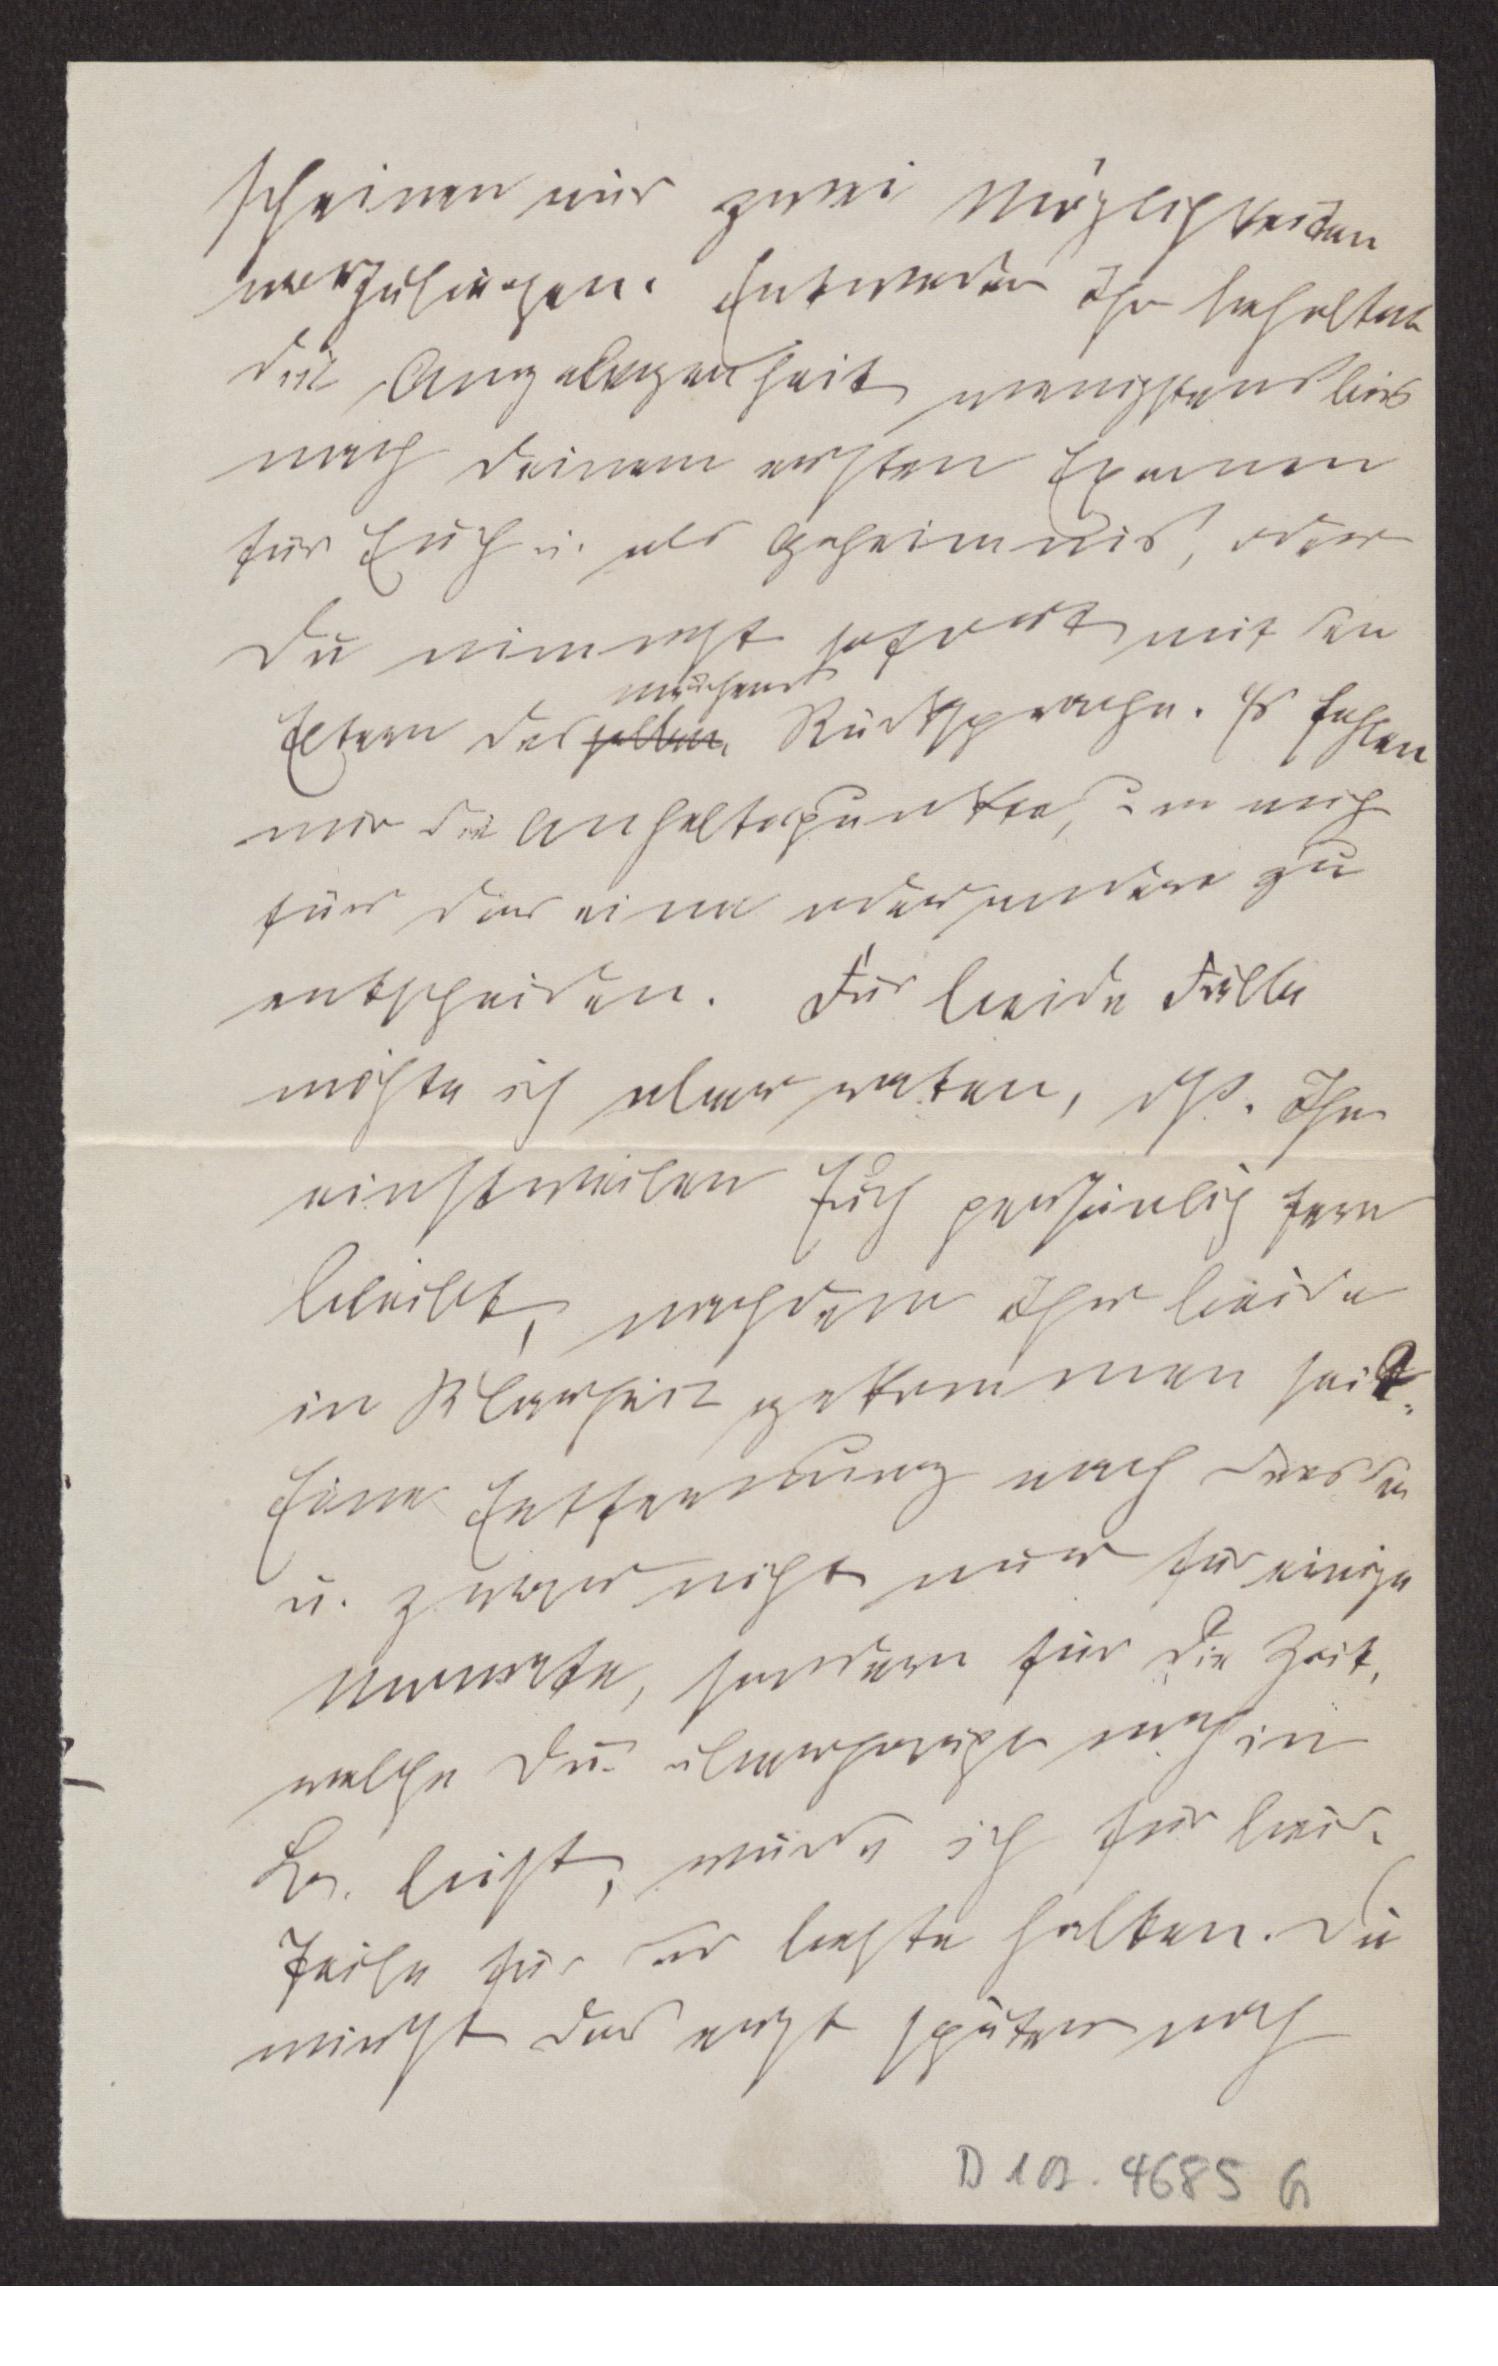 scheinen mir zwei Möglichkeiten
vorzuliegen. Entweder Ihr behaltet
die Angelegenheit wenigstens bis
nach deinem ersten Examen
für Euch u. als Geheimnis, oder
Du nimmst sofort mit den
Eltern des selben Mädchens Rücksprache. Es fehlen
mir die Anhaltspunkte, um mich
für das eine oder andere zu
entscheiden. Für beide Fälle
möchte ich aber raten, dß. Ihr
einstweilen Euch persönlich fern
bleibt, nachdem Ihr beide
in Klarheit gekommen seid.
Eine Entfernung nach
u. zwar nicht nur für einige
Monate, sondern für die Zeit,
welche Du überhaupt noch in
bist, würde ich für beide
Teile für das beste halten. Du
wirst das erst später noch
D 1 A. 4685 G